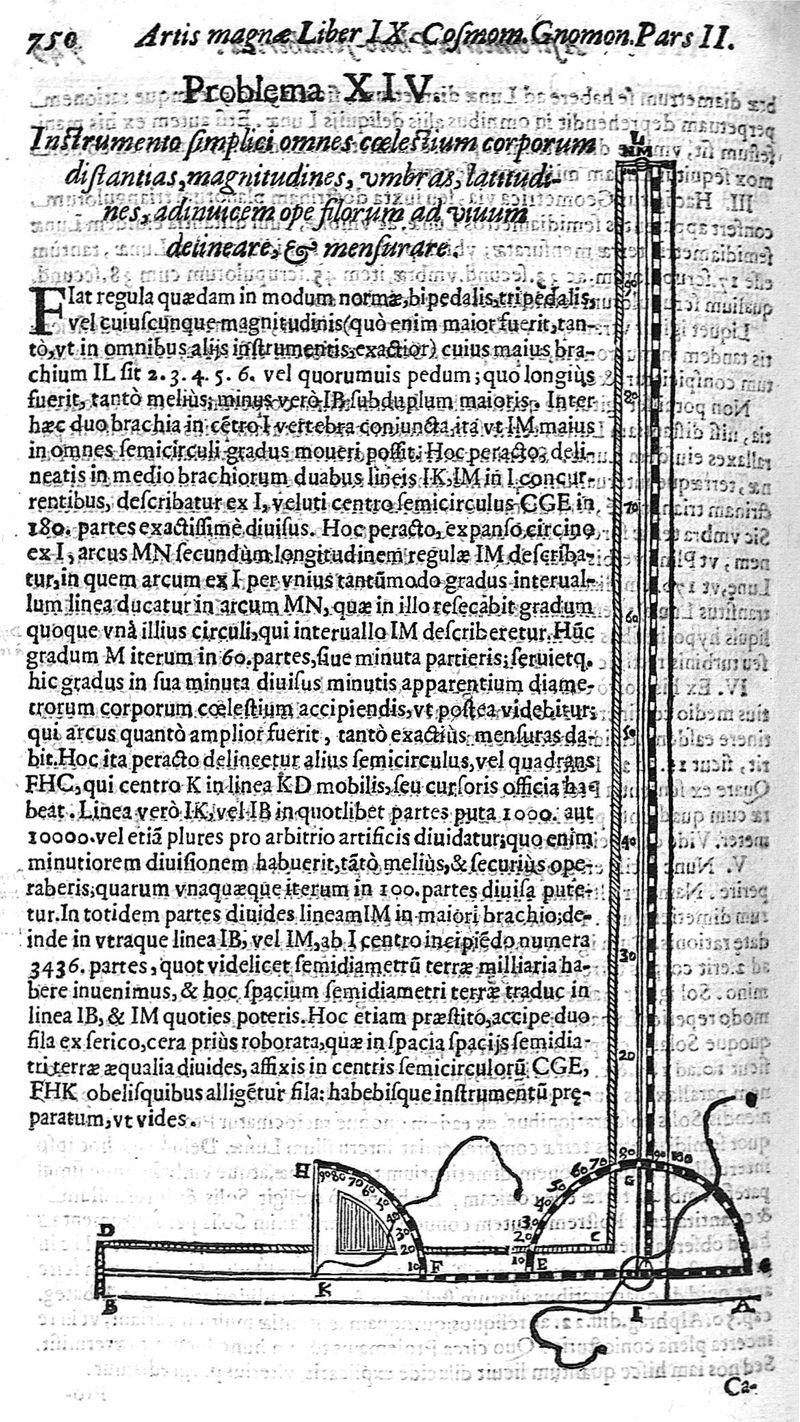 750 Artis magnæ Liber IX. Cosmom. Gnomon. Pars II.
Problema XIV.
Instrumento simplici omnes cœlestium corporum
distantias, magnitudines, vmbras, latitudi-
nes, adinuicem ope filorum ad viuum
delineare, & mensurare.
FIat regula quædam in modum normæ, bipedalis, tripedalis,
vel cuiuscunque magnitudinis (quò enim maior fuerit, tan-
tò, vt in omnibus alijs instrumentis, exactior) cuius maius bra-
chium IL sit 2. 3. 4. 5. 6. vel quorumuis pedum; quo longiùs
fuerit, tantò melius; minus verò IB subduplum maioris. Inter
hæc duo brachia in cẽtro I vertebra coniuncta, ita vt IM maius
in omnes semicirculi gradus moueri possit. Hoc peracto, deli-
neatis in medio brachiorum duabus lineis IK, IM in I concur-
rentibus, describatur ex I, veluti centro semicirculus CGE in
180. partes exactissimè diuisus. Hoc peracto, expanso circino
ex I, arcus MN secundùm longitudinem regulæ IM describa-
tur, in quem arcum ex I per vnius tantũmodo gradus interual-
lum linea ducatur in arcum MN, quæ in illo resecabit gradum
quoque vnà illius circuli, qui interuallo IM describeretur. Hũc
gradum M iterum in 60. partes, siue minuta partieris; seruietq.
hic gradus in sua minuta diuisus minutis apparentium diame-
trorum corporum cœlestium accipiendis, vt postea videbitur;
qui arcus quantò amplior fuerit, tantò exactiùs mensuras da-
bit. Hoc ita peracto delineetur alius semicirculus, vel quadrans
FHC, qui centro K in linea KD mobilis, seu cursoris officia ha-
beat. Linea verò IK, vel IB in quotlibet partes puta 1000. aut
10000. vel etiã plures pro arbitrio artificis diuidatur; quo enim
minutiorem diuisionem habuerit, tãtò meliùs, & securiùs ope-
raberis; quarum vnaquæque iterum in 100. partes diuisa pute-
tur. In totidem partes diuides lineam IM in maiori brachio; de-
inde in vtraque linea IB, vel IM, ab I centro incipiẽdo numera
3436. partes, quot videlicet semidiametrũ terræ milliaria ha-
bere inuenimus, & hoc spacium semidiametri terræ traduc in
linea IB, & IM quoties poteris. Hoc etiam præstito, accipe duo
fila ex serico, cera priùs roborata, quæ in spacia spacijs semidia-
tri terræ æqualia diuides, affixis in centris semicirculorũ CGE,
FHK obelisquibus alligẽtur fila: habebisque instrumentũ prę-
paratum, vt vides.
L
N M
90
80
70
60
50
40
30
20
H
90 80 70 60 50 40 30 20 10
G
10 20 30 40 50 60 70 80 90 100 110
D
F E C
B K I A
Ca-